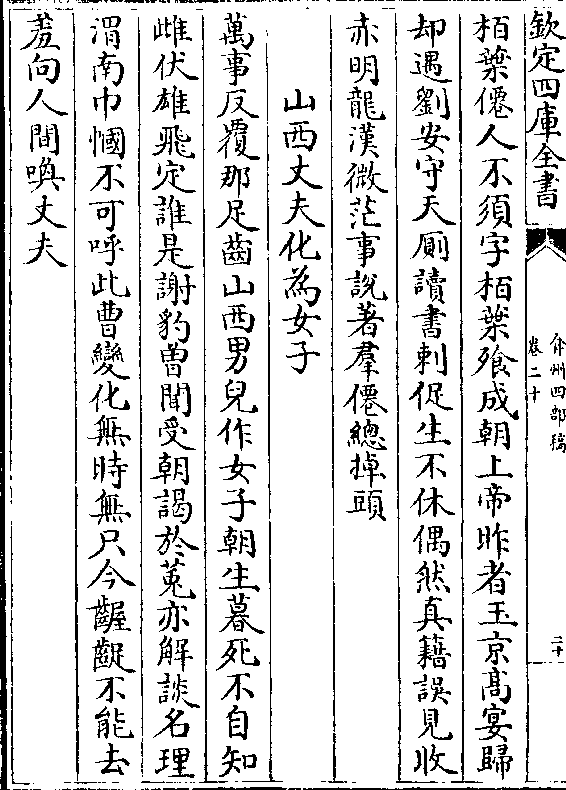 欽定四庫全書
弇州四部稿
卷二十
二十
栢葉僊人不須字栢葉飱成朝上帝昨者玉京髙宴歸
却遇劉安守天厠讀書刺促生不休偶然真籍誤見收
赤明龍漢微茫事說著羣僊總掉頭
山西丈夫化為女子
萬事反覆那足齒山西男兒作女子朝生暮死不自知
雌伏雄飛定誰是謝豹曽聞受朝謁於菟亦解談名理
渭南巾幗不可呼此曹變化無時無只今齷齪不能去
羞向人間喚丈夫